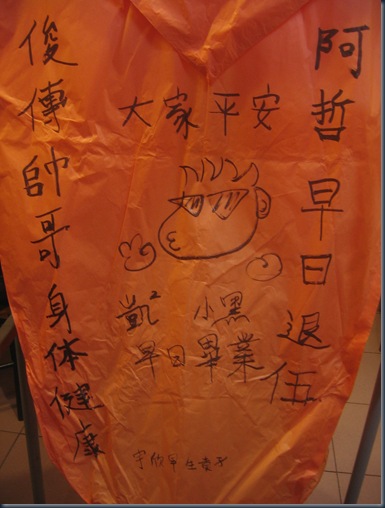 阿哲早日退伍
大家平安
凱² 小黑
早日畢業
俊傳帥哥身体健康
宇欣早生貴子